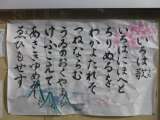 いろは歌
いろはにほへと
ちりぬるを
わかよたれそ
つねならむ
うゐのおくやま
けふこえて
あさきゆめみし
ゑひもせす